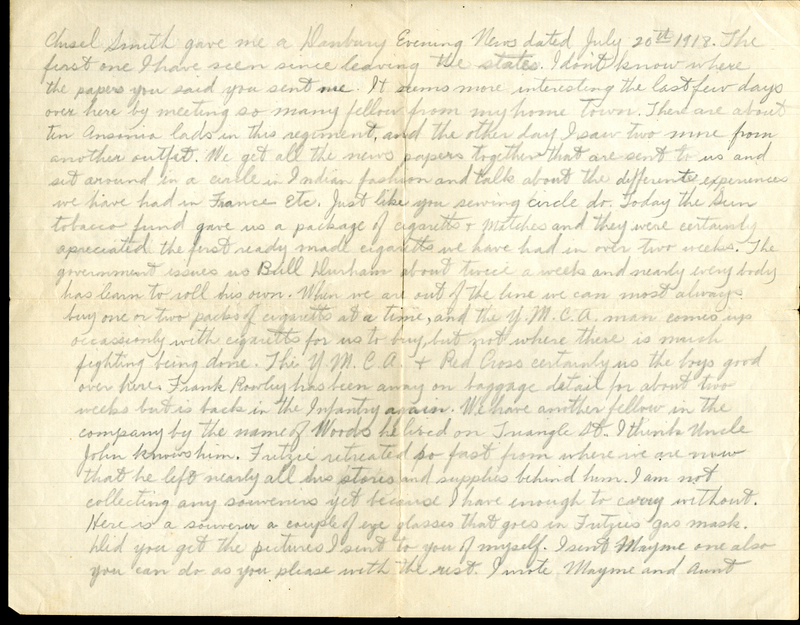 Chisel Smith gave me a Danbury Evening News dated July 20th 1918. The
first one I have seen since leaving the states. I don't know where
the papers you said you sent me. It seems more interesting the last few days
over here by meeting so many fellow from my home town. There are about
ten Ansonia lads in this regiment, and the other day I saw two more from
another outfit. We get all the news papers together that are sent to us and
sit around in a circle in Indian fashion and talks about the differents experiences
we have had in France etc. Just like you sewing circle do. Today the Sun
tobacco fund gave us a package of cigaretts + Matches and they were certainly
apreciated the first ready made cigaretts we have had in over two weeks. The
government issues us Bull Durham about twice a weeks and nearly every body
has learn to roll his own. When we are out of the line we can most always
buy one or two packs of cigaretts at a time, and the Y.M.C.A. man comes up
occassionly with cigaretts for us to buy, but not where there is much
fighting being done. The Y.M.C.A. + Red Cross certainly us the boys good
over here. Frank Rowley has been away on baggage detail for about two
weeks but is back in the Infantry again. We have another fellow in the
company by the name of Woods he lived on Triangle St. I think Uncle
John knows him. Fritzie retreated so fast from where we are now
that he left nearly all his stores and supplies behind him. I am not
collecting any souveners yet because I have enough to carry without.
Here is a souvener a couple of eye glasses that goes in Fritzies gas mask.
Did you get the pictures I sent to you of myself. I sent Mayme one also
you can do as you please with the rest. I wrote Mayme and Aunt